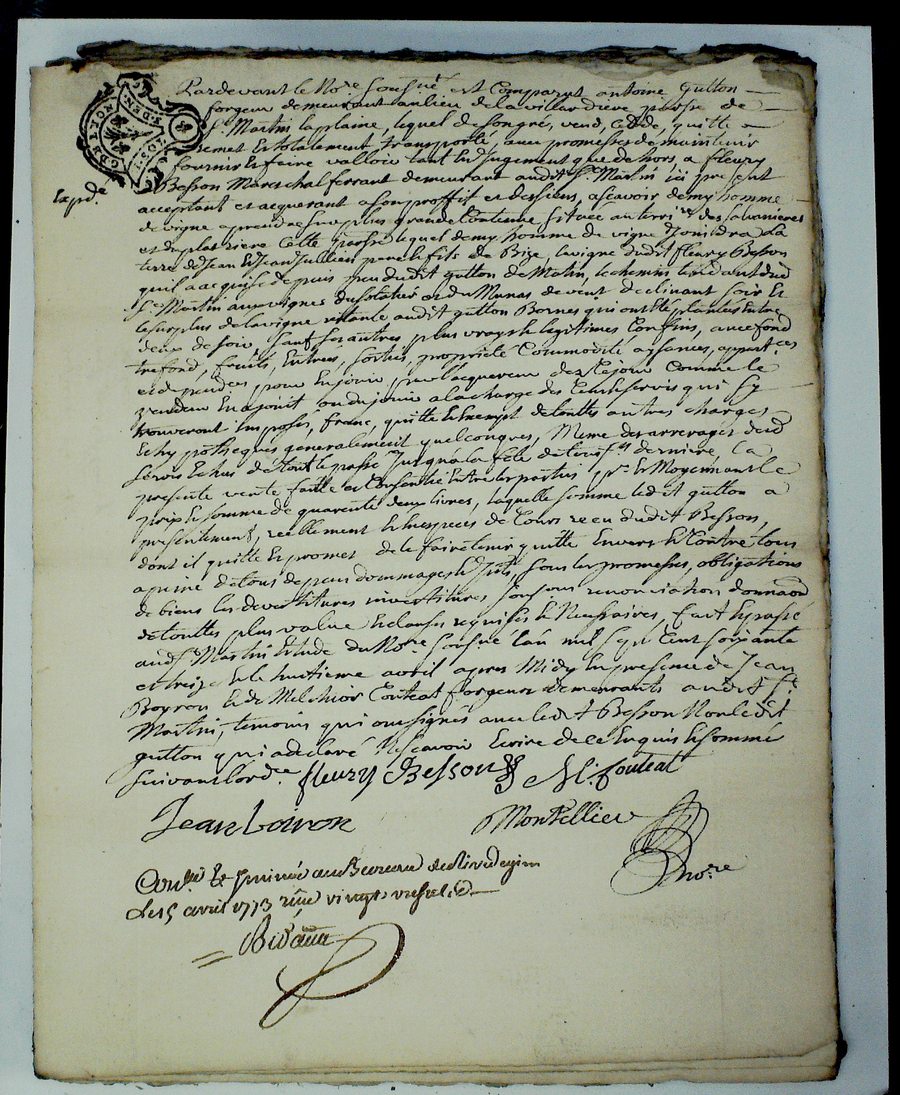 Pardevant le No.re Sousné est Comparut antoine gutton
forgeur demeurant au lieu de la villardiere parsse de
S.t Martin laplaine, lequel de son gré, vend, Cedde, quitte
remet et totalement transporté, avec promesse de maintenir
fournir et faire valloir tant En Jugement que de hors, a fleury
Besson Marechal ferrant demeurant audit S.t Martin ici present
Expd.é
acceptant et acquerant a son proffit et des siens, ascavoir demy homme
de vigne a prendre sur plus grande Contenue, situee au terri.re des
et du plat riere Cette parsse lequel demy homme de vigne Joint
terre de Jean et Jean Jullien pour le fils de Bize, la vigne dudit fleury Besson
qu'il a acquise depuis peu dudit gutton de Matin, le chemin tendant dud
S.t Martin aux vignes et du de vent declinant soir Et
le surplus de la vigne restante audit gutton Bornes qui ont Eté plantées Entre
deux de soir, sauf ses autres plus vrays et legitimes Confins, avec fond
trefond, fruits, Entrees, sorties, proprieté Commodité aysances, appart.ces
et dependces pour En jouir par l'acquereur dez Ce jour Comme le
vendeur En a jouit ou du jouir a la charge des Cens et servis qui s'y
trouveront Imposés, franc, quitte et Exempt de touttes autres charges
Et hypotheques generalement quelconques, Meme des arrerages desd
servis Echus de tout le passé Jusqu'a la fete de derniere, la
presente vente faitte et Consentie Entre les parties pr. Et Moyennant le
prix et somme de quarente deux livres, laquelle somme ledit gutton a
presentement, reellement et En especes de Cours receu dudit Besson,
dont il quitte Et promet de le faire tenir quitte Envers Et Contre tous
a peine de tous depens dommages Et Jnts, sous les promesses, obligations
de biens les devestitures investitures renonciation donnaôn
de touttes plus value Et clauses requises Et Necessaires, fait Et passé
aud S.t Martin Etude du No.re sousné l'an mil sept Cent soixante
et treize Et le huitieme avril apres Midy En presence de Jean
Boyron et de Melchior Couteat forgeurs demeurants audit S.t
Martin, temoins qui ont signés avec ledit Besson Non ledit
gutton qui a declaré Ne scavoir Ecrire de ce Enquis Et sommé
suivant l'ord.ce fleury Besson M. Couteat
Jean Boiron Montellier
no.re
Con.lé Et au Bureau de Rivedegier
Le 15 avril 1773 reçu vingt